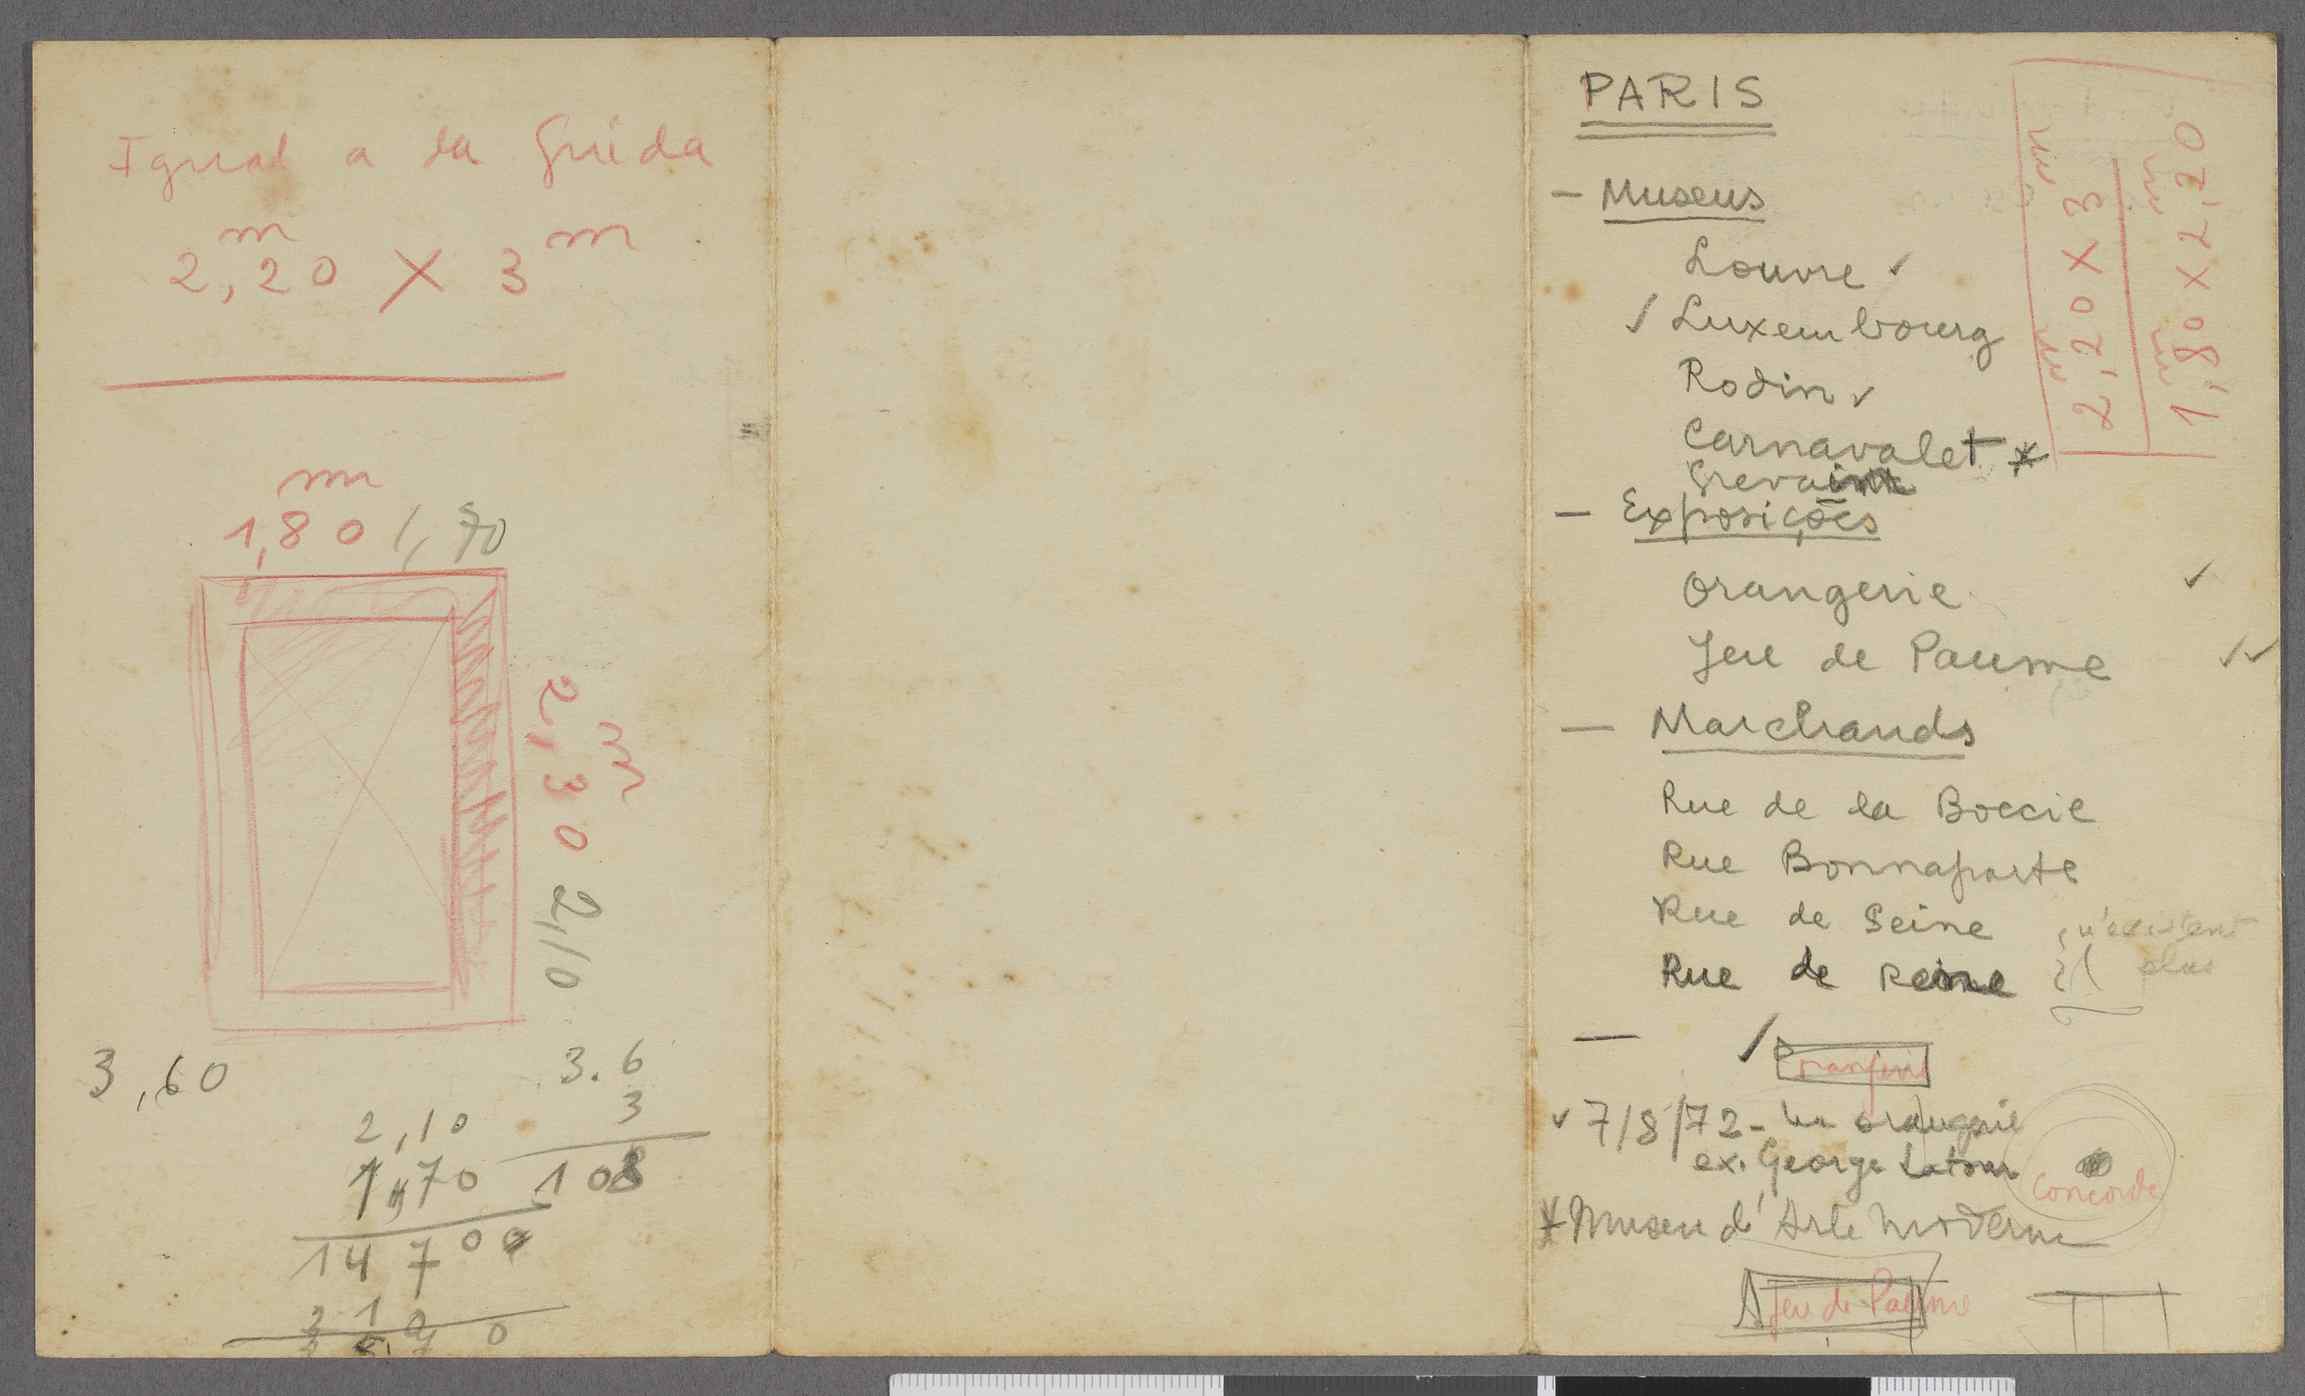 Igual a la Guida
m m
2,20 X 3
m
1,80 1,70
m
2,30 2,10
3,60
3.6
3
108
2,10
1,70
14700
210
0
PARIS
m m
2,20 X 3
m m
1,80 X 2,20
— Museus
Louvre ✓
✓ Luxembourg
Rodin ✓
Carnavalet *
— Exposições
Orangerie ✓
Jeu de Paume ✓✓
— Marchands
Rue de la Boecie
Rue Bonnaparte
Rue de Seine
Rue de Reine
n'existent
plus
—
✓ Orangerie
✓ 7/8/72 - orangerie
ex. George Latour
Concorde
* Museu d'Arte Moderne
Jeu de Paume